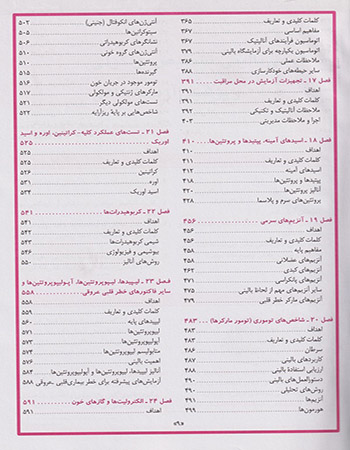 کلمات کلیدی و تعاریف ۳۶۵
مفاهیم اساسی ۳۶۷
اتوماسیون فرآیندهای آنالیتیک ۳۶۷
اتوماسیون یکپارچه برای آزمایشگاه بالینی ۳۷۹
ملاحظات عملی ۳۸۶
سایر حیطه‌های خودکارسازی ۳۸۸
فصل ۱۷ ـ تجهیزات آزمایش در محل مراقبت ۳۹۱
اهداف ۳۹۱
کلمات کلیدی و تعاریف ۳۹۱
ملاحظات آنالیتیک و تکنیکی ۳۹۲
اجرا و ملاحظات مدیریتی ۴۰۳
فصل ۱۸ ـ اسیدهای آمینه، پپتیدها و پروتئین‌ها ۴۱۰
اهداف ۴۱۰
کلمات کلیدی و تعاریف ۴۱۱
اسیدهای آمینه ۴۱۲
پپتیدها و پروتئین‌ها ۴۱۸
آنالیز پروتئین‌ها ۴۲۰
پروتئین‌های سرم و پلاسما ۴۲۸
فصل ۱۹ ـ آنزیم‌های سرمی ۴۵۶
اهداف ۴۵۶
کلمات کلیدی و تعاریف ۴۵۶
مفاهیم پایه ۴۵۸
آنزیم‌های عضلانی ۴۵۸
آنزیم‌های کبدی ۴۶۲
آنزیم‌های پانکراسی ۴۷۱
سایر آنزیم‌های مهم از لحاظ بالینی ۴۷۵
آنزیم‌های مارکر خطر قلبی ۴۷۹
فصل ۲۰ ـ شاخص‌های توموری (تومور مارکرها) ۴۸۳
اهداف ۴۸۳
کلمات کلیدی و تعاریف ۴۸۳
سرطان ۴۸۶
کاربردهای بالینی ۴۸۷
ارزیابی استفادهٔ بالینی ۴۸۷
دستورالعمل‌های بالینی ۴۹۰
روش‌های تحلیلی ۴۹۰
آنزیم‌ها ۴۹۱
هورمون‌ها ۴۹۹
آنتی‌ژن‌های انکوفتال (جنینی) ۵۰۲
سیتوکراتین‌ها ۵۰۵
نشانگرهای کربوهیدراتی ۵۰۶
آنتی‌ژن‌های گروه خونی ۵۱۰
پروتئین‌ها ۵۱۰
گیرنده‌ها ۵۱۵
تومور موجود در جریان خون ۵۱۶
مارکرهای ژنتیکی و مولکولی ۵۱۷
تست‌های مولکولی دیگر ۵۲۱
شاخص‌هایی بر پایهٔ ریزآرایه ۵۲۲
فصل ۲۱ ـ تست‌های عملکرد کلیه - کراتینین، اوره و اسید
اوریک ۵۲۵
اهداف ۵۲۵
کلمات کلیدی و تعاریف ۵۲۵
کراتینین ۵۲۶
اوره ۵۳۱
اسید اوریک ۵۳۴
فصل ۲۲ ـ کربوهیدرات‌ها ۵۴۱
اهداف ۵۴۱
کلمات کلیدی و تعاریف ۵۴۲
شیمی کربوهیدرات‌ها ۵۴۳
بیوشیمی و فیزیولوژی ۵۴۶
روش‌های آنالیز ۵۵۰
فصل ۲۳ ـ لیپیدها، لیپوپروتئین‌ها، آپولیپوپروتئین‌ها و
سایر فاکتورهای خطر قلبی عروقی ۵۵۸
اهداف ۵۵۸
کلمات کلیدی و تعاریف ۵۵۹
لیپیدهای پایه ۵۶۰
لیپوپروتئین‌ها ۵۷۱
آپولیپوپروتئین‌ها ۵۷۳
متابولیسم لیپوپروتئین‌ها ۵۷۴
اهمیت بالینی ۵۷۶
آنالیز لیپیدها، لیپوپروتئین‌ها و آپولیپوپروتئین‌ها ۵۸۴
آزمایش‌های پیشرفته برای خطر بیماری قلبی ـ عروقی ۵۸۸
فصل ۲۴ ـ الکترولیت‌ها و گازهای خون ۵۹۱
اهداف ۵۹۱
«۹»